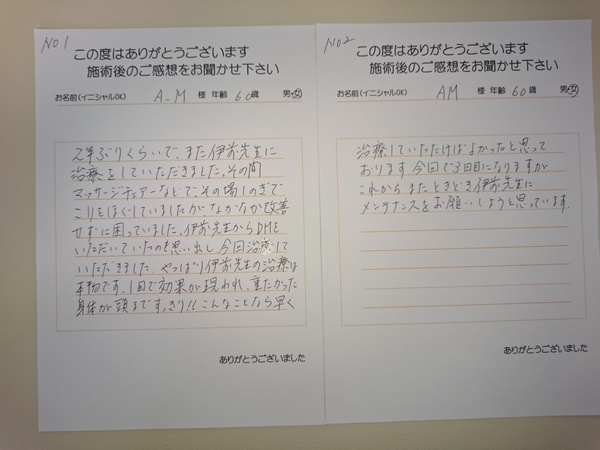 NO1
この度はありがとうございます
施術後のご感想をお聞かせ下さい
お名前(イニシャルOK) A.M 様 年齢 60歳 男・女
2年ぶりくらいで、また伊前先生に
治療をしていただきました。その間
マッサージチェアーなどで、その場しのぎで
こりをほぐしていましたが、なかなか改善
せずに困っていました。伊前先生からDMを
いただいていたのを思い出し、今回治療して
いただきました。やっぱり伊前先生の治療は
本物です。1回で効果が現われ、重たかった
身体が頭まですっきり!!こんなことなら早く
ありがとうございました
NO2
この度はありがとうございます
施術後のご感想をお聞かせ下さい
お名前(イニシャルOK) AM 様 年齢 60歳 男・女
治療していただけばよかったと思って
おります。今回で3回目になりますが
これからまたときどき伊前先生に
メンテナンスをお願いしようと思っています。
ありがとうございました